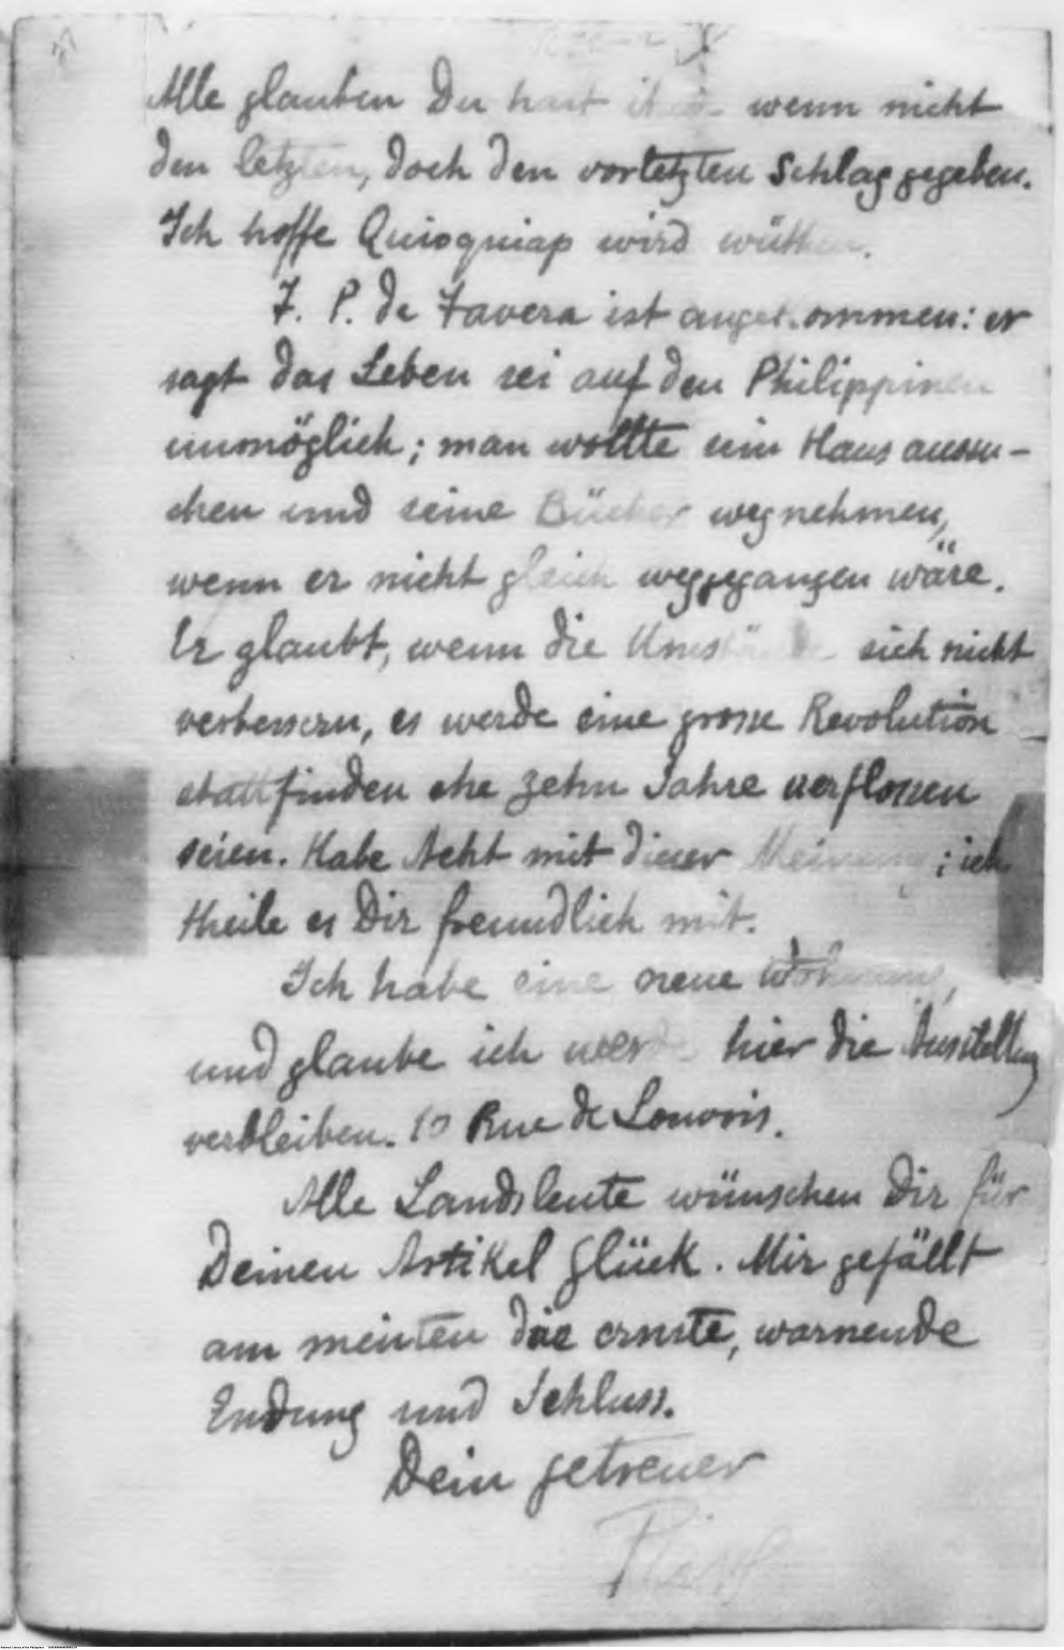 Alle glauben Du hast wenn nicht
den letzten, doch den vorletzten Schlag gegeben.
Ich hoffe Quioquiap wird wüthen.
T. P. de Tavera ist angekommen: er
sagt das Leben sei auf den Philippinen
unmöglich; man wollte sein Haus aussu-
chen und seine Bücher wegnehmen,
wenn er nicht gleich weggegangen wäre.
Er glaubt, wenn die Umstände sich nicht
verbessern, es werde eine grosse Revolution
stattfinden ehe zehn Jahre verflossen
seien. Habe Acht mit dieser Meinung; ich
theile es Dir freundlich mit.
Ich habe eine neue Wohnung,
und glaube ich werde hier die Ausstellung
verbleiben. 10 Rue de Louvois.
Alle Landsleute wünschen Dir für
Deinen Artikel Glück. Mir gefällt
am meisten die ernste, warnende
Endung und Schluss.
Dein getreuer